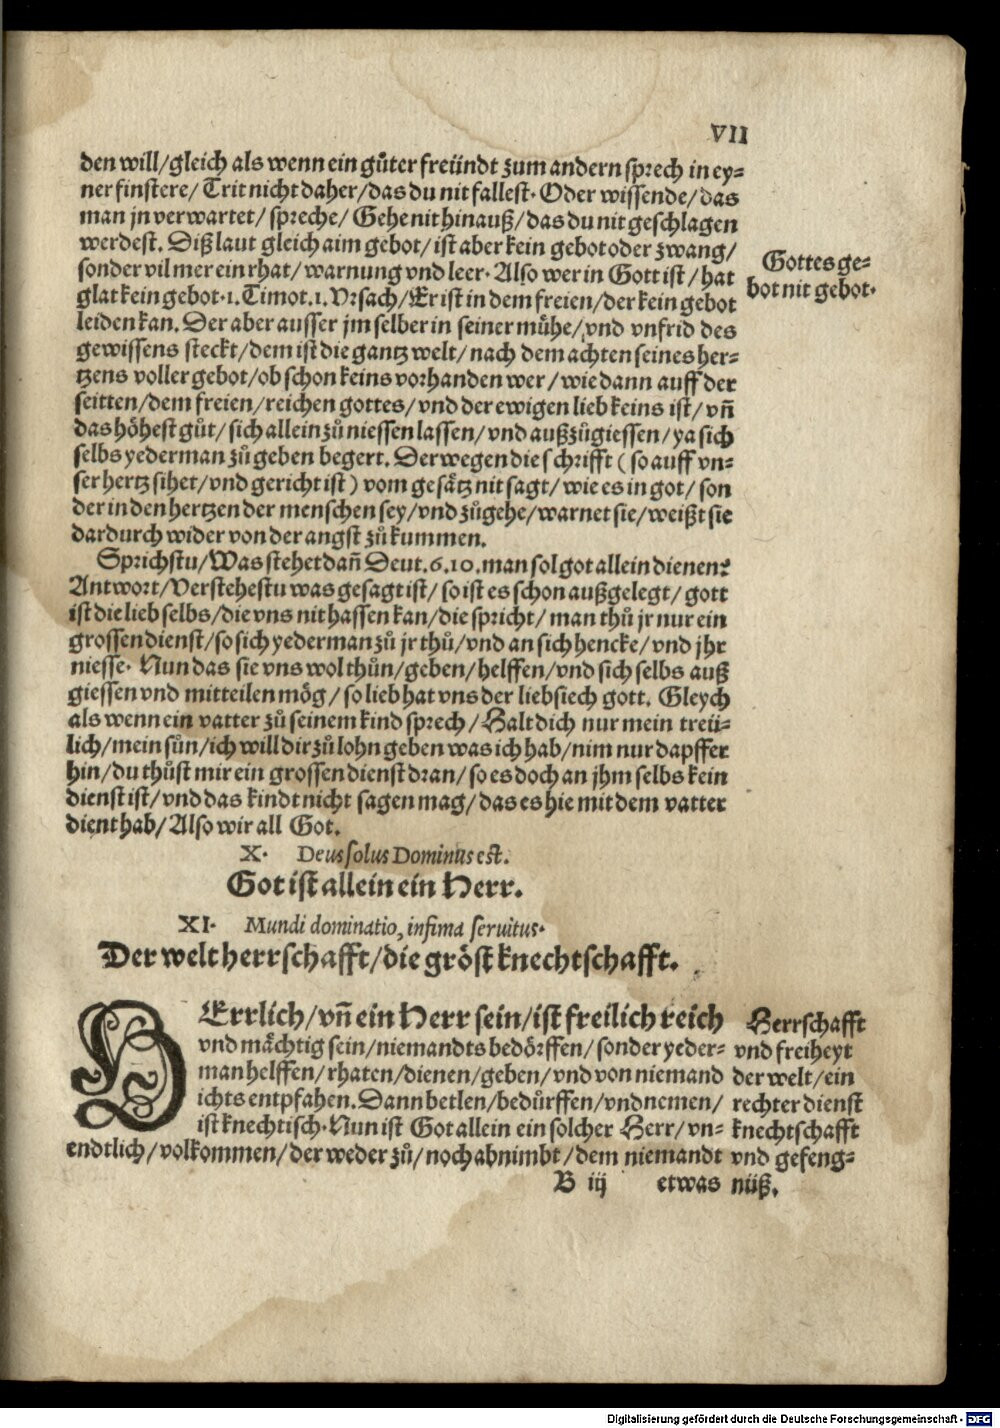 VII
den will/gleich als wenn ein gůter freündt zum andern sprech in ey=
ner finstere/ Trit nicht daher/das du nit fallest. Oder wissende/das
man jn verwartet/ spreche/ Gehe nit hinauß/das du nit geschlagen
werdest. Diß laut gleich aim gebot/ist aber kein gebot oder zwang/
sonder vil mer ein rhat/warnung vnd leer. Also wer in Gott ist/hat
glat kein gebot.1.Timot.1.Vrsach/Er ist in dem freien/der kein gebot
leiden kan. Der aber ausser jm selber in seiner mühe/vnd vnfrid des
gewissens steckt/dem ist die gantz welt/nach dem achten seines her=
tzens voller gebot/ob schon keins vorhanden wer/wie dann auff der
seitten/dem freien/reichen gottes/vnd der ewigen lieb keins ist/vñ
das höhest gůt/sich allein zů niessen lassen/vnd außzůgiessen/ya sich
selbs yederman zů geben begert. Derwegen die schrifft (so auff vn=
ser hertz sihet/vnd gericht ist) vom gesätz nit sagt/wie es in got/son
der in den hertzen der menschen sey/vnd zůgehe/warnet sie/weißt sie
dardurch wider von der angst zů kummen.
Gottes ge=
bot nit gebot.
Sprichstu/Was stehet dañ Deut.6.10.man sol got allein dienen?
Antwort/Verstehestu was gesagt ist/so ist es schon außgelegt/gott
ist die lieb selbs/die vns nit hassen kan/die spricht/man thů jr nur ein
grossen dienst/so sich yederman zů jr thů/vnd an sich hencke/vnd jhr
niesse. Nun das sie vns wol thůn/geben/helffen/vnd sich selbs auß
giessen vnd mitteilen mög/so lieb hat vns der liebsiech gott. Gleych
als wenn ein vatter zů seinem kind sprech/Halt dich nur mein treü=
lich/mein sůn/ich will dir zů lohn geben was ich hab/nim nur dapffer
hin/du thůst mir ein grossen dienst dran/so es doch an jhm selbs kein
dienst ist/vnd das kindt nicht sagen mag/das es hie mit dem vatter
dient hab/Also wir all Got.
X. Deus solus Dominus est.
Got ist allein ein Herr.
XI. Mundi dominatio, infima seruitus.
Der welt herrschafft/die gröst knechtschafft.
HErrlich/vñ ein Herr sein/ist freilich reich
vnd mächtig sein/niemandts bedörffen/sonder yeder=
man helffen/rhaten/dienen/geben/vnd von niemand
ichts entpfahen. Dann betlen/bedürffen/vnd nemen/
ist knechtisch. Nun ist Got allein ein solcher Herr/vn=
endtlich/volkommen/der weder zů/noch abnimbt/dem niemandt
Herrschafft
vnd freiheyt
der welt/ein
rechter dienst
knechtschafft
vnd gefeng=
nüß.
B iij etwas
Digitalisierung gefördert durch die Deutsche Forschungsgemeinschaft - DFG